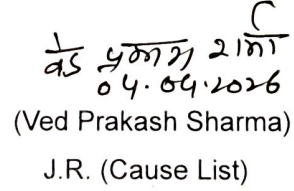 वेद प्रकाश शर्मा
04.04.2026
(Ved Prakash Sharma)
J.R. (Cause List)